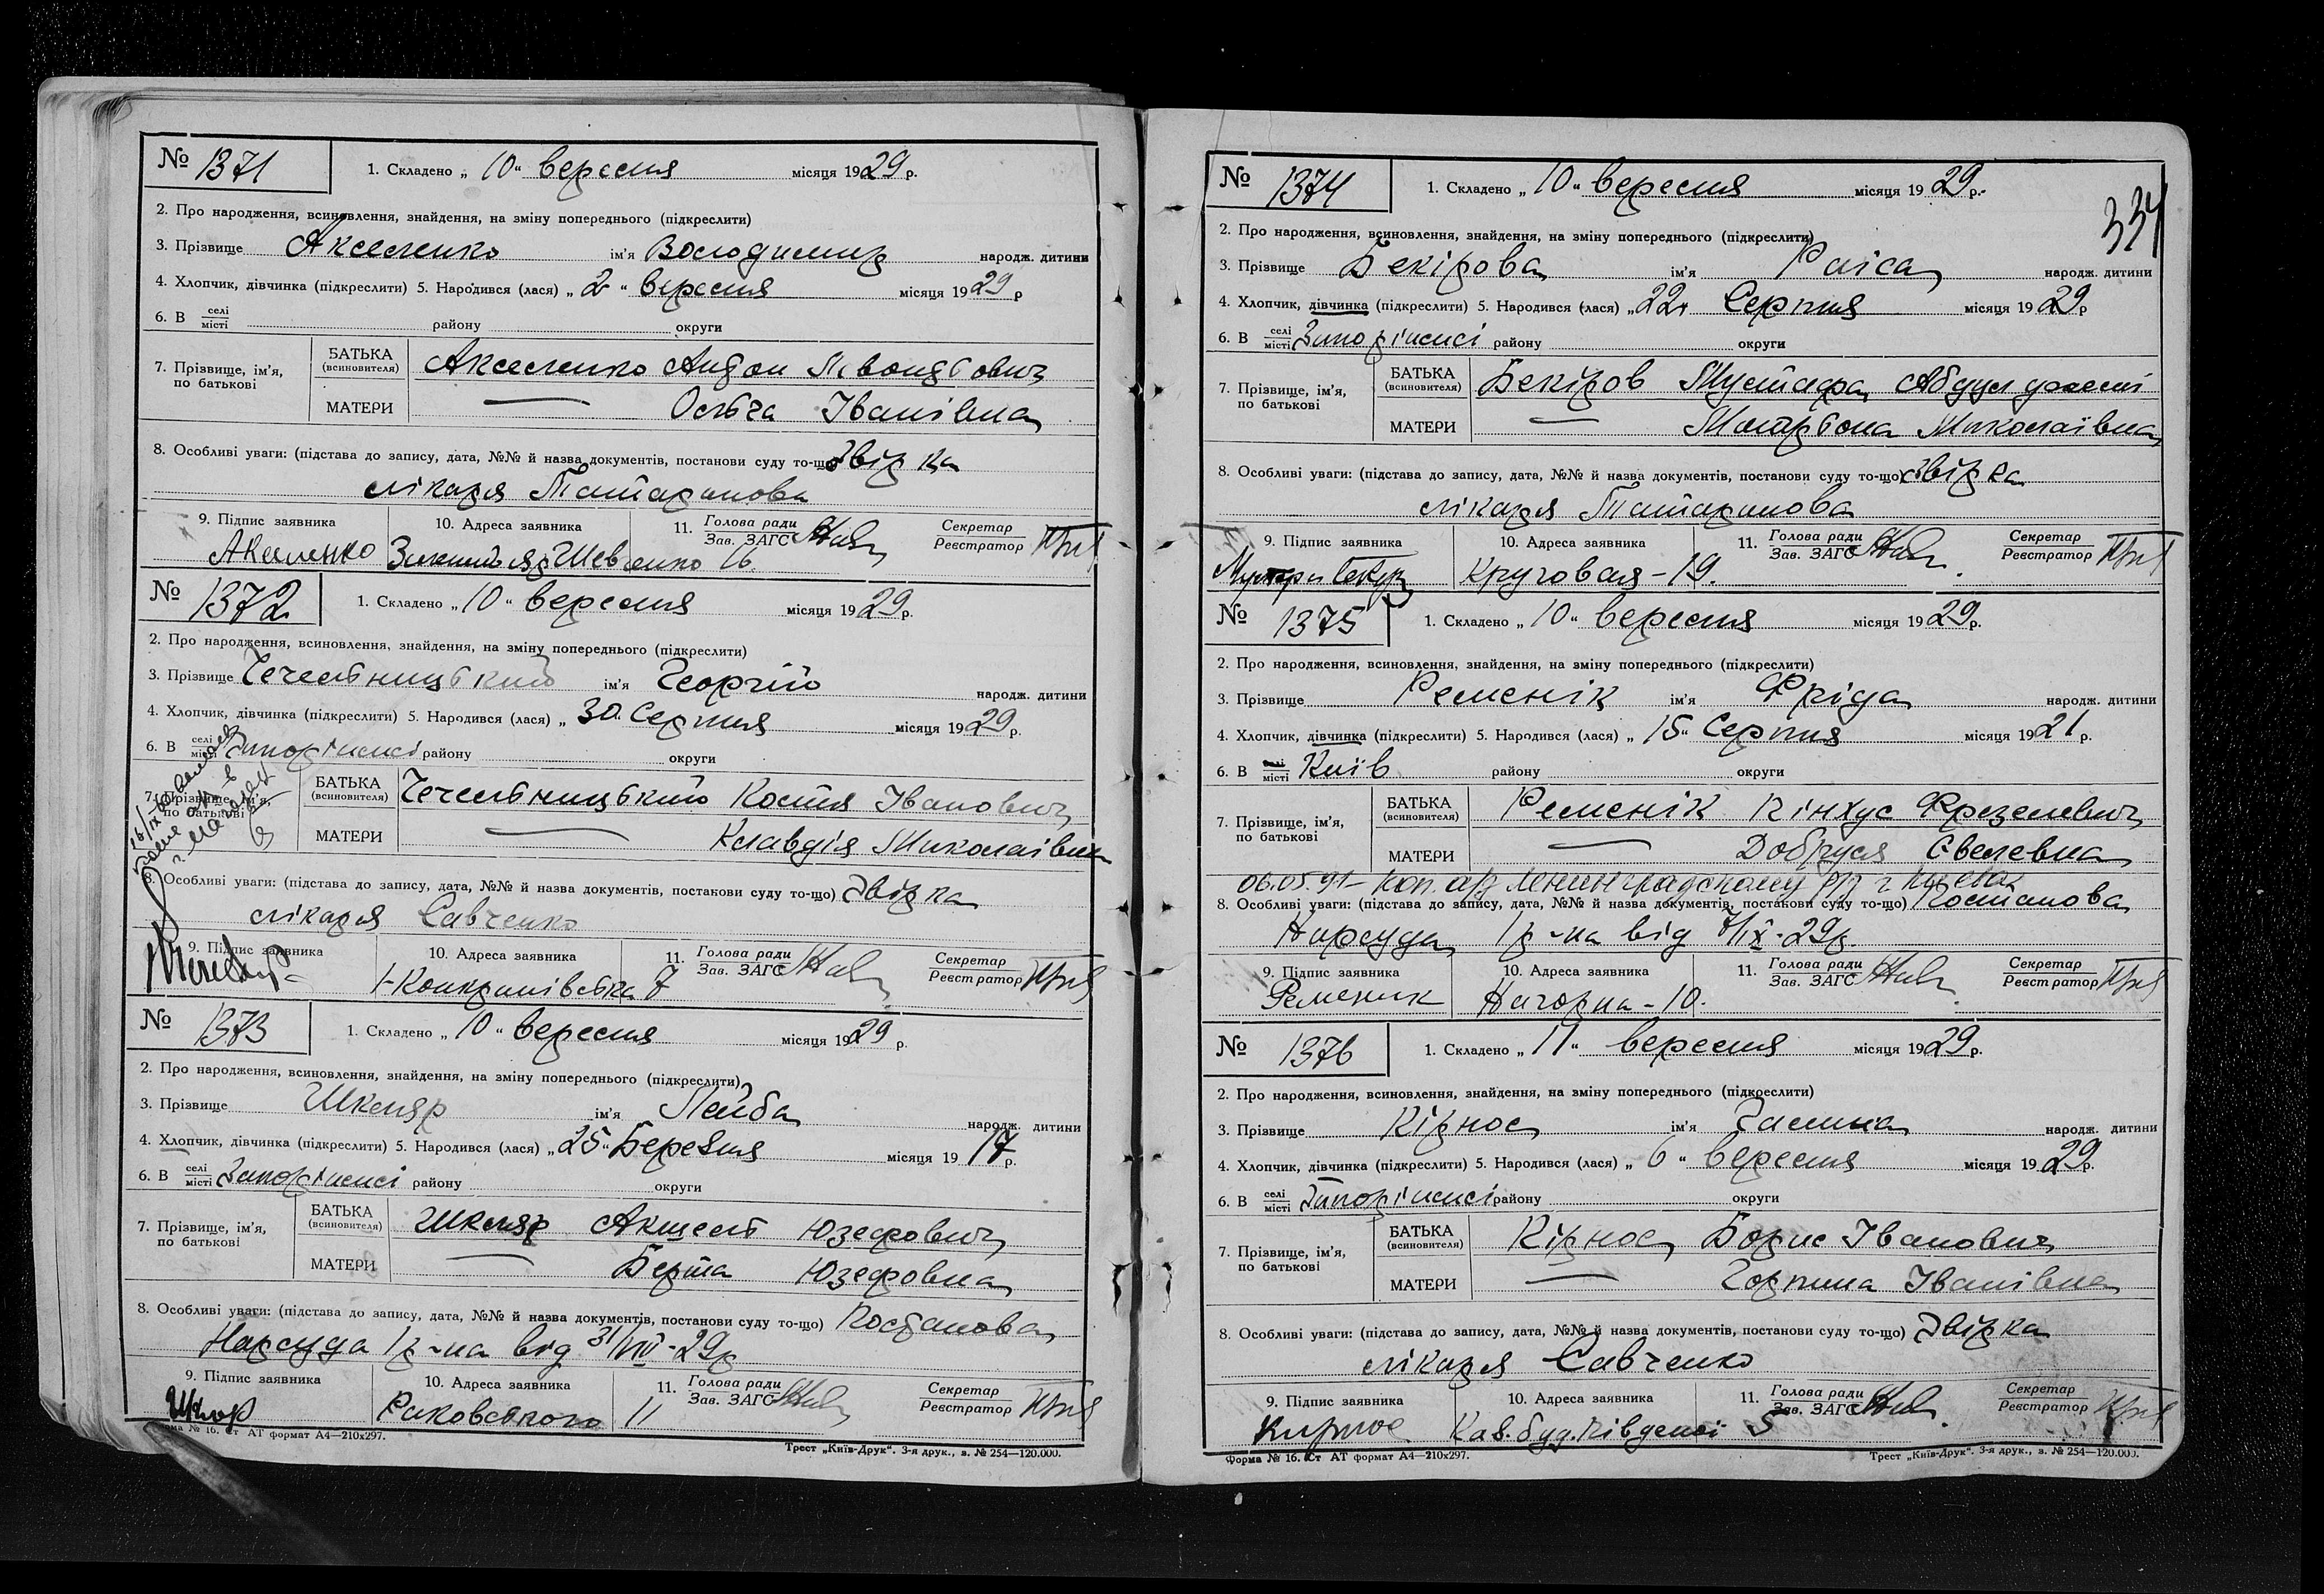 № 1371
1. Складено „ 10 “ вересня місяця 1929 р.
2. Про народження, всиновлення, знайдення, на зміну попереднього (підкреслити)
3. Прізвище Акселенко ім'я Володимир народж. дитини
4. Хлопчик, дівчинка (підкреслити) 5. Народився (лася) „ 2 “ вересня місяця 1929 р
6. В селі місті району округи
7. Прізвище, ім'я, по батькові
БАТЬКА (всиновителя) Акселенко Антон
МАТЕРИ — Ольга Іванівна
8. Особливі уваги: (підстава до запису, дата, №№ й назва документів, постанови суду то-що) Звірка
лікаря Татаринова
9. Підпис заявника 10. Адреса заявника 11. Голова ради Зав. ЗАГС Секретар Реєстратор
Акселенко Шевченко 16
№ 1372
1. Складено „ 10 “ вересня місяця 1929 р.
2. Про народження, всиновлення, знайдення, на зміну попереднього (підкреслити)
3. Прізвище Чечельницький ім'я Георгій народж. дитини
4. Хлопчик, дівчинка (підкреслити) 5. Народився (лася) „ 30 Серпня місяця 1929 р.
6. В селі місті Запоріжжі району округи
7. Прізвище, ім'я, по батькові
БАТЬКА (всиновителя) Чечельницький Костя Іванович
МАТЕРИ — Клавдія Миколаівна
8. Особливі уваги: (підстава до запису, дата, №№ й назва документів, постанови суду то-що) Звірка
лікаря Савченко
9. Підпис заявника 10. Адреса заявника 11. Голова ради Зав. ЗАГС Секретар Реєстратор
7
№ 1373
1. Складено „ 10 “ вересня місяця 1929 р.
2. Про народження, всиновлення, знайдення, на зміну попереднього (підкреслити)
3. Прізвище Шкляр ім'я Лейба народж. дитини
4. Хлопчик, дівчинка (підкреслити) 5. Народився (лася) „ 25 “ Березня місяця 19 17 р.
6. В селі місті Запоріжжі району округи
7. Прізвище, ім'я, по батькові
БАТЬКА (всиновителя) Шкляр Юзефович
МАТЕРИ — Берта Юзефовна
8. Особливі уваги: (підстава до запису, дата, №№ й назва документів, постанови суду то-що) Постанова
Нарсуда 1 р-на від 31/VIII-29р
9. Підпис заявника 10. Адреса заявника 11. Голова ради Зав. ЗАГС Секретар Реєстратор
Шкляр Раковського 11
Форма № 16. Ст АТ формат А4—210х297.
Трест „Київ-Друк“. 3-я друк., в. № 254—120.000.
334
№ 1374
1. Складено „ 10 “ вересня місяця 19 29 р.
2. Про народження, всиновлення, знайдення, на зміну попереднього (підкреслити)
3. Прізвище Бекірова ім'я Раіса народж. дитини
4. Хлопчик, дівчинка (підкреслити) 5. Народився (лася) „ 22 “ Серпня місяця 19 29 р
6. В селі місті Запоріжжі району округи
7. Прізвище, ім'я, по батькові
БАТЬКА (всиновителя) Бекіров Мустафа
МАТЕРИ — Миколаївна
8. Особливі уваги: (підстава до запису, дата, №№ й назва документів, постанови суду то-що) Звірка
лікаря Татаринова
9. Підпис заявника 10. Адреса заявника 11. Голова ради Зав. ЗАГС Секретар Реєстратор
Круговая - 19.
№ 1375
1. Складено „ 10 “ вересня місяця 19 29 р.
2. Про народження, всиновлення, знайдення, на зміну попереднього (підкреслити)
3. Прізвище Ременік ім'я Фріда народж. дитини
4. Хлопчик, дівчинка (підкреслити) 5. Народився (лася) „ 15 “ Серпня місяця 19 21 р.
6. В селі місті Київ району округи
7. Прізвище, ім'я, по батькові
БАТЬКА (всиновителя) Ременік Пінхус
МАТЕРИ — Добруся
06.05.91 - Ленинградскому г Киева
8. Особливі уваги: (підстава до запису, дата, №№ й назва документів, постанови суду то-що) Постанова
Нарсуда 1 р-на від 7/IX-29р.
9. Підпис заявника 10. Адреса заявника 11. Голова ради Зав. ЗАГС Секретар Реєстратор
Ременик Нагорна - 10.
№ 1376
1. Складено „ 11 “ вересня місяця 19 29 р.
2. Про народження, всиновлення, знайдення, на зміну попереднього (підкреслити)
3. Прізвище Кірнос ім'я Галина народж. дитини
4. Хлопчик, дівчинка (підкреслити) 5. Народився (лася) „ 6 “ вересня місяця 19 29 р.
6. В селі місті Запоріжжі району округи
7. Прізвище, ім'я, по батькові
БАТЬКА (всиновителя) Кірнос Борис Іванович
МАТЕРИ — Горпина Іванівна
8. Особливі уваги: (підстава до запису, дата, №№ й назва документів, постанови суду то-що) Звірка
лікаря Савченко
9. Підпис заявника 10. Адреса заявника 11. Голова ради Зав. ЗАГС Секретар Реєстратор
Кирнос 5
Форма № 16. Ст АТ формат А4—210х297.
Трест „Київ-Друк“. 3-я друк., в. № 254—120.000.